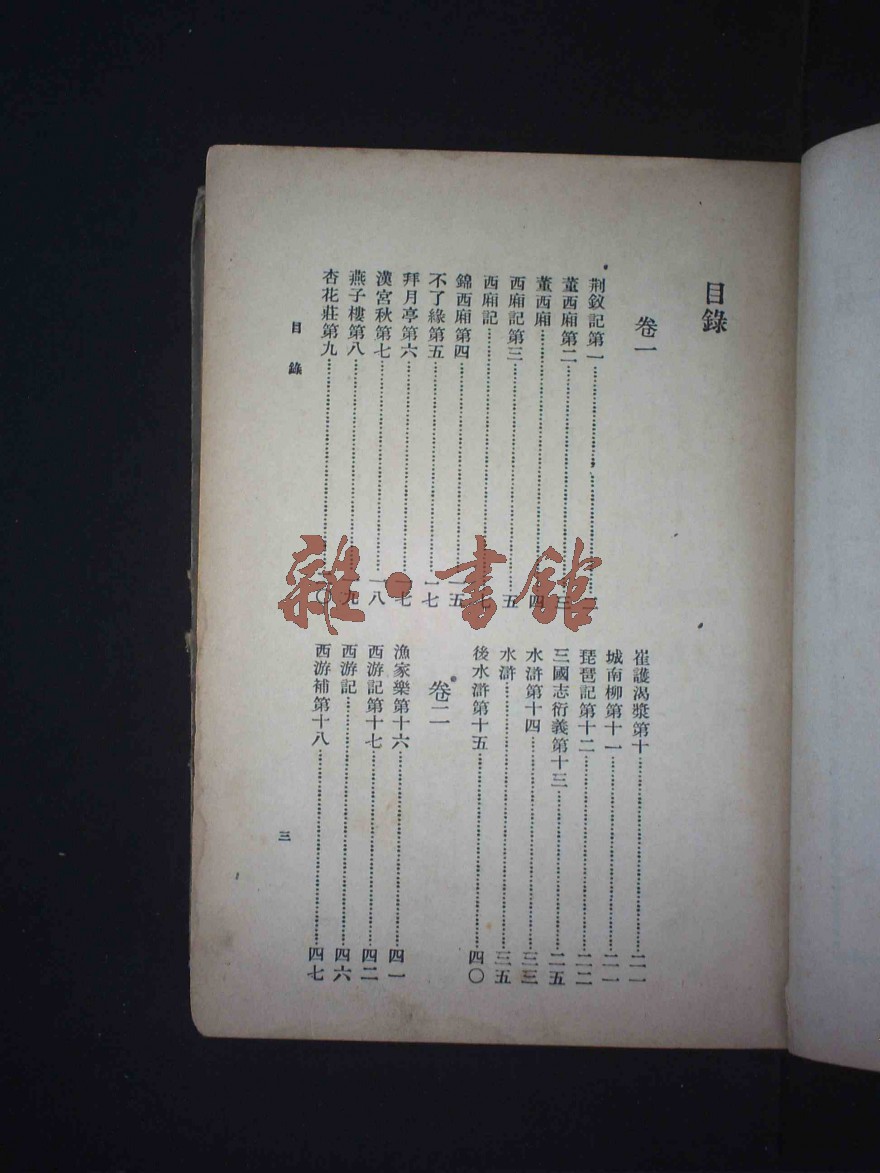 目錄
卷一
荆釵記第一……一
董西廂第二……三
董西廂……四
西廂記第三……五
西廂記……七
錦西廂第四……一五
不了緣第五……一七
拜月亭第六……一七
漢宮秋第七……一八
燕子樓第八……一九
杏花莊第九……二〇
崔護渴漿第十……二一
城南柳第十一……二一
琵琶記第十二……二二
三國志衍義第十三……二五
水滸第十四……三三
水滸……三五
後水滸第十五……四〇
卷二
漁家樂第十六……四一
西游記第十七……四二
西游記……四六
西游補第十八……四七
目錄
三
雜·書館